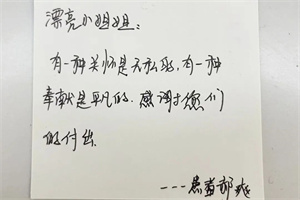 漂亮小姐姐：
有一种关怀是无私的，有一种
奉献是平凡的.感谢您们
的付出.
----患者郭